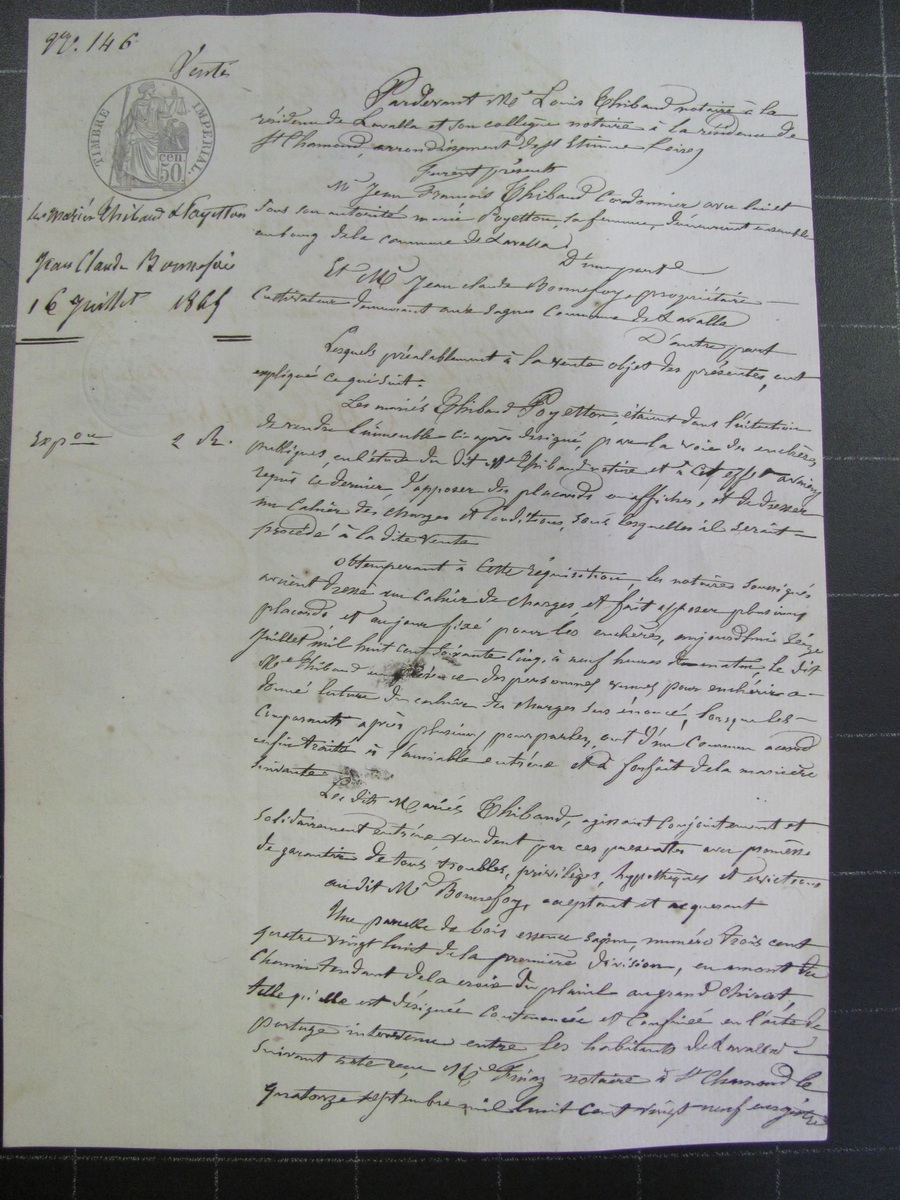 N°. 146
Vente
TIMBRE IMPERIAL.
cen.
50.
Les mariés Thibaud & Poyetton
Jean Claude Bonnefoi
16 Juillet 1865
Exp on 2 R.
Pardevant Me Louis Thibaud notaire à la
résidence de Lavalla et son collègue notaire à la résidence de
St Chamond, arrondissement de St Etienne Loire
furent présents
Mr Jean François Thibaud Cordonnier avec lui et
sous son autorité marie Poyetton, sa femme, demeurant ensemble
au bourg de la commune de Lavalla
D'une part
Et Mr Jean Claude Bonnefoy, propriétaire
Cultivateur demeurant aux Sagnes Commune de Lavalla
D'autre part
Lesquels préalablement à la vente objet des présentes, ont
expliqué ce qui suit.
Les mariés Thibaud Poyetton, étaient dans l'intention
de vendre l'immeuble ci après désigné, par la voie des enchères
publiques, en l'étude du dit Me Thibaud notaire et à cet effet avaient
requis ce dernier, d'apposer des placards ou affiches, et de dresser
un Cahier des charges et Conditions, sous lesquelles il serait
procédé à la dite vente
obtemperant à cette réquisition, les notaires soussignés
avaient dressé un Cahier de charges et fait apposer plusieurs
placards, et au jour fixé pour les enchères, aujourdhui seize
Juillet mil huit cent soixante cinq, à neuf heures du matin, le dit
Me Thibaud en présence des personnes venues pour enchérir a
donné lecture du cahier des charges sus énoncé, lorsque les
Comparants après plusieurs pourparlers, ont d'un commun accord
enfin traité à l'amiable entr'eux et à forfait de la manière
suivante
Les dits Mariés Thibaud, agissant conjointement et
solidairement entr'eux vendent par ces présentes avec promesse
de garantie de tous troubles, privilèges, hypothèques et évictions
au dit Mr Bonnefoy, acceptant et acquérant
Une parcelle de bois essence sapin, numéro trois cent
quatre vingt huit de la première division, en amont du
Chemin tendant de la croix du au grand
telle qu'elle est désignée Contenancée et Confinée en l'acte de
partage intervenu entre les habitants de Lavalla
suivant acte reçu Me notaire à St Chamond le
quatorze septembre mil huit cent vingt neuf enregistré